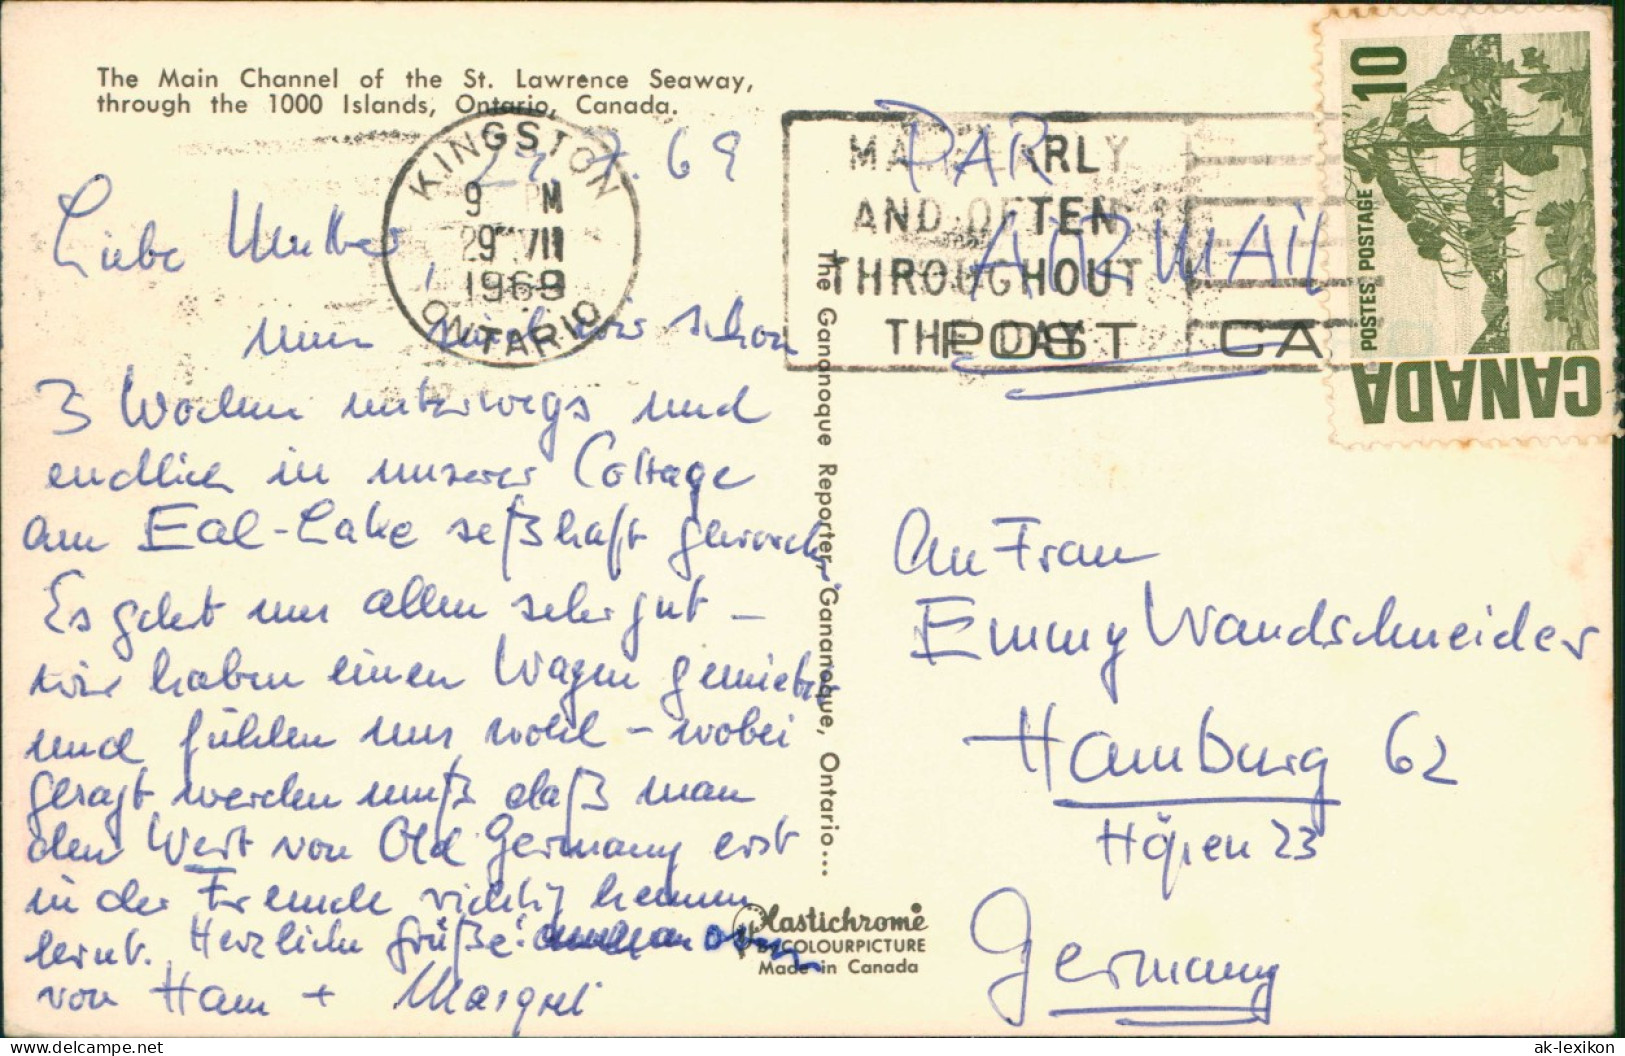 The Main Channel of the St. Lawrence Seaway,
through the 1000 Islands, Ontario, Canada.
KINGSTON
9 PM
29 VII
1969
ONTARIO
MAIL EARLY
AND OFTEN
THROUGHOUT
THE DAY
PAR
AIR MAIL
POST CA
10
POSTES POSTAGE
CANADA
7. 69
Liebe Mutter,
nun sind wir schon
3 Wochen unterwegs und
endlich in unserer Cottage
am Eel-Lake seßhaft geworden.
Es geht uns allen sehr gut –
wir haben einen Wagen gemietet
und fühlen uns wohl – wobei
gesagt werden muß daß man
den Wert von Old Germany erst
in der Fremde richtig kennen
lernt. Herzliche Grüße!
von Ham + Margret
The Gananoque Reporter, Gananoque, Ontario...
Plastichrome
BY COLOURPICTURE
Made in Canada
An Frau
Emmy Wandschneider
Hamburg 62
23
Germany
www.delcampe.net
ak-lexikon